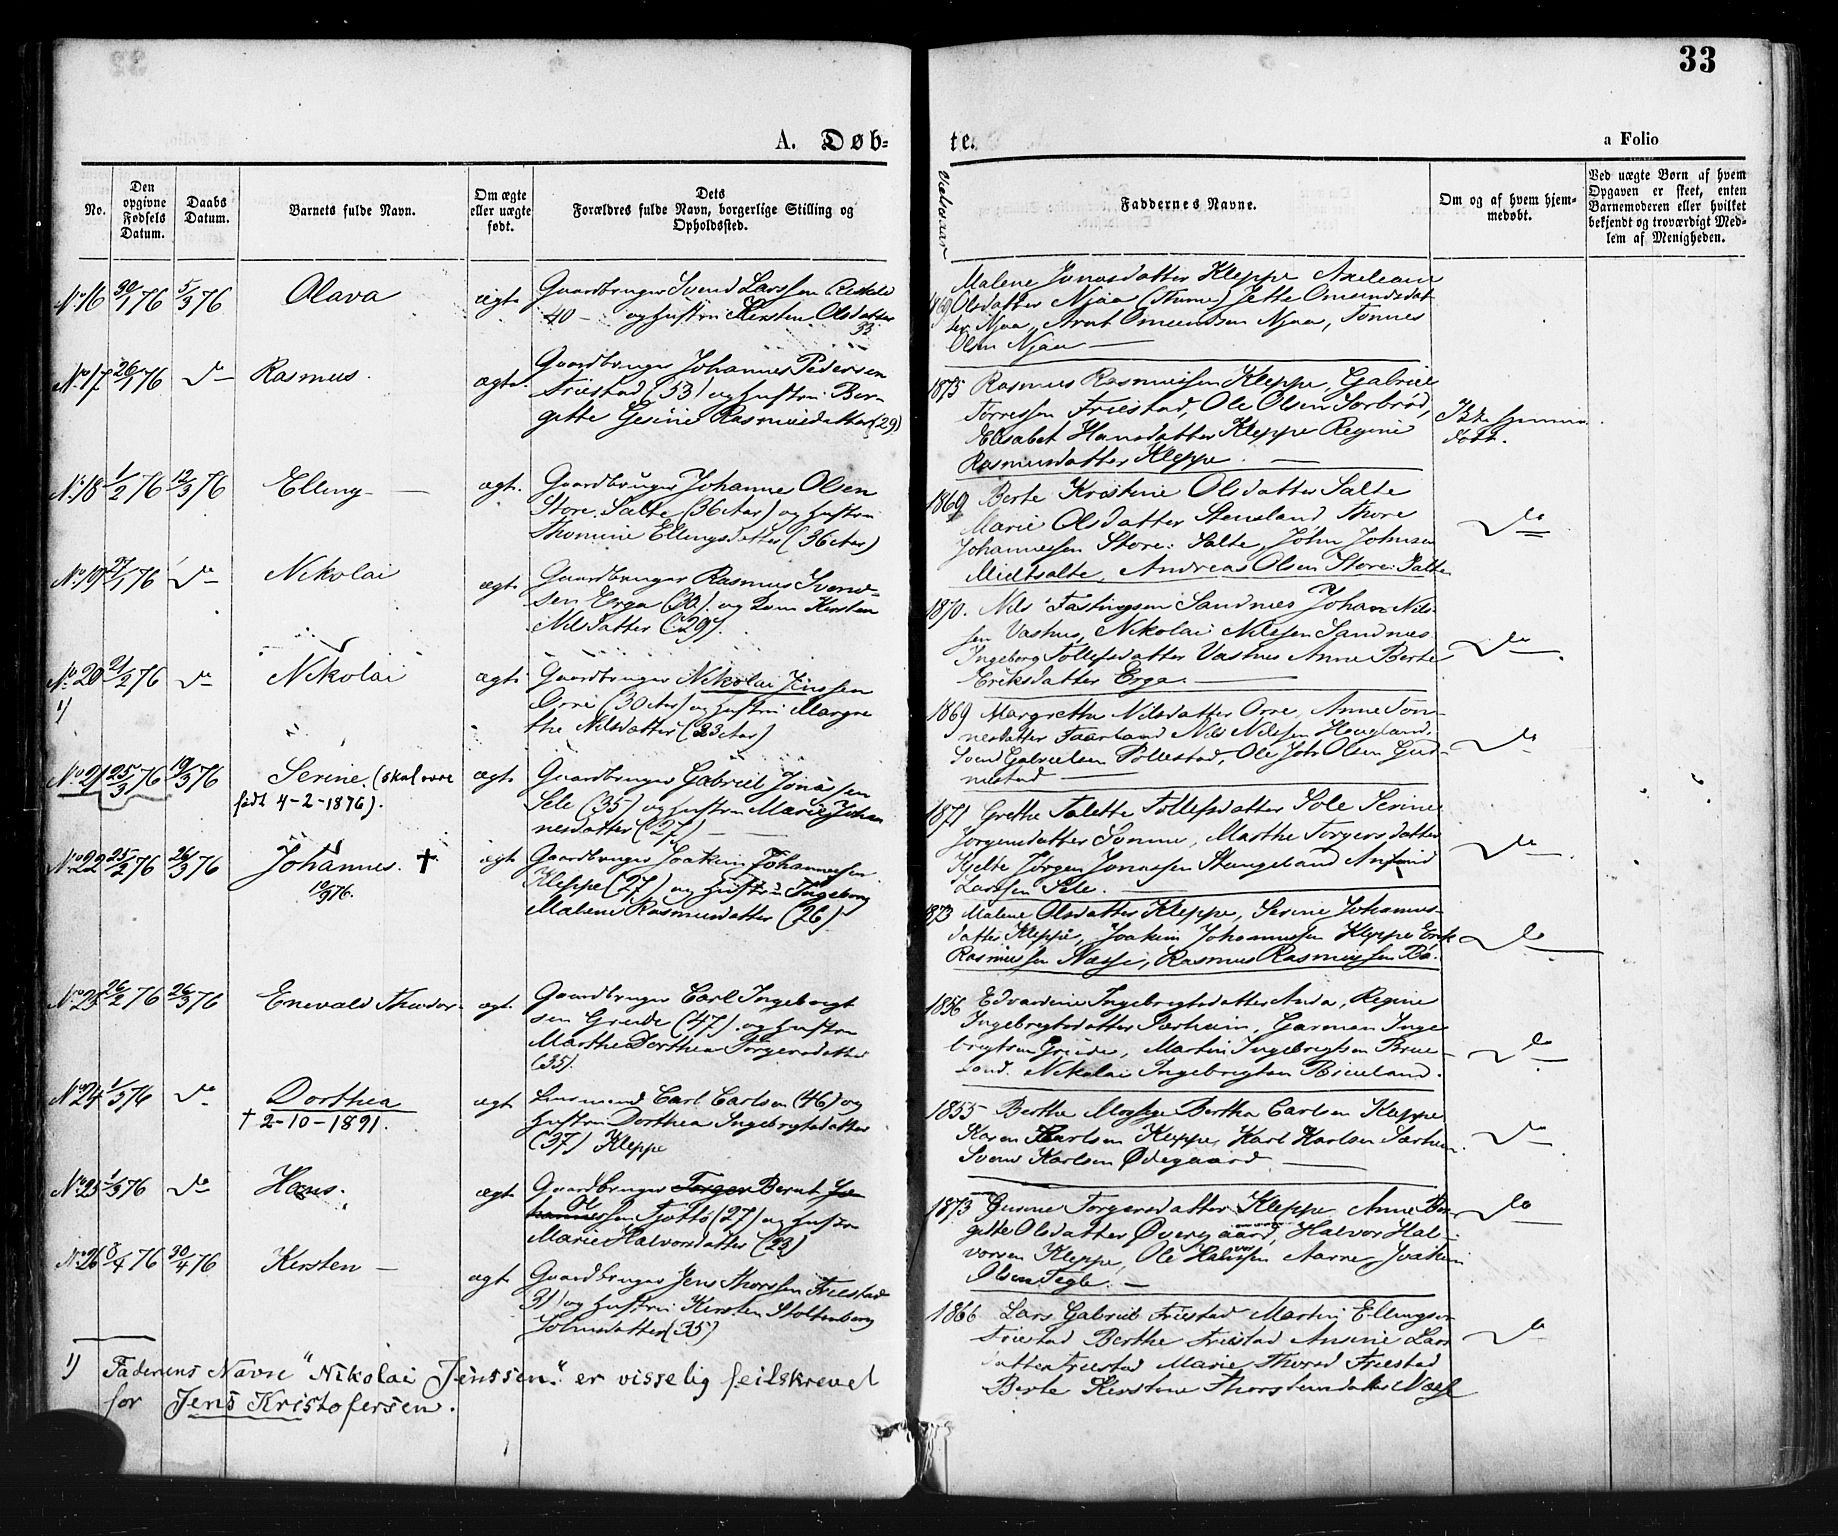 33
A. Døb-
te.
a Folio
No.
Den opgivne Fødsels Datum.
Daabs Datum.
Barnets fulde Navn.
Om ægte eller uægte født.
Dets Forældres fulde Navn, borgerlige Stilling og Opholdssted.
Faddernes Navne.
Om og af hvem hjemmedøbt.
Ved uægte Børn af hvem Opgaven er skeet, enten Barnemoderen eller hvilket bekjendt og troværdigt Medlem af Menigheden.
No 16 30/1 76 5/3 76 Olava ægt. Gaardbruger Svend Larssen
40 – og hustru Kersten Olsdatter
33
Malene Jonasdatter Kleppe
1869 Olsdatter Njaa (Thime) Jette Omundsdat-
ter Njaa, Arnt Omundsen Njaa, Tønnes
Olsen Njaa —
No 17 26/1 76 Do Rasmus. ægte. Gaardbruger Johannes Pedersen
Friestad (53) og hustru Ber-
gitte Gesine Rasmusdatter (29)
1875 Rasmus Rasmussen Kleppe, Gabriel
Torressen Friestad, Ole Olsen Sørbrød,
Elisabet Hansdatter Kleppe Regine
Rasmusdatter Kleppe. —
Ikke hjemme
døbt.
No 18 1/2 76 12/3 76 Elling — ægt. Gaardbruger Johanne Olsen
Store. Salte (36 Aar) og hustru
Thomine Ellingsdatter (36 Aar)
1869 Berte Kristine Olsdatter Salte
Marie Olsdatter Stensland Thore
Johannessen Store: Salte, John Johnsen
Midtsalte, Andreas Olsen Store: Salte
Do
No 19 27/1 76 Do Nikolai ægt. Gaardbruger Rasmus Svend-
sen Erga (30). og Kone Kirsten
Nilsdatter (29).
1870. Nils Fastingsen Sandnes Johan Nils-
sen Vashus, Nikolai Nilssen Sandnes
Ingeborg Tollefsdatter Vashus Anne Berte
Eriksdatter Erga. —
Do
No 20 21/2 76 Do Nikolai ægt. Gaardbruger Nikolai Jenssen
Orre (30 Aar) og hustru Margre
the Nilsdatter (33 Aar)
1)
1869 Margrethe Nilsdatter Orre, Anne Tøn-
nesdatter Faarland Nils Nilssen Haugland,
Svend Gabrielsen Pollestad, Ole Joh. Olsen Gud-
mestad —
Do
No 21 25/3 76 19/3 76 Serine. (skal være ægt. Gaardbruger Gabriel Jonassen
født 4-2-1876). Sele (35) og hustru Marie Johan
nesdatter (27) —
1871 Grethe Talette Tollefsdatter Sole Serine
Jørgensdatter Somme, Marthe Torgersdatter
Kjelte Jørgen Jonassen Stangeland
Larssen Sele. —
Do
No 22 25/2 76 26/3 76 Johannes. † ægt Gaardbruger Joakim Johannessen
10/9 76. Kleppe (27) og hustru Ingeborg
Malene Rasmusdatter (26)
1873 Malene Olsdatter Kleppe, Serine Johannes-
datter Kleppe, Joakim Johannessen Kleppe Erik
Rasmussen Næsse, Rasmus Rasmussen Bø.
Do
No 23 26/2 76 26/3 76 Enevald Theodor. ægt. Gaardbruger Carl Ingebrigt
sen Grude (47). og hustru
Marthe Dorthea Torgersdatter
(35).
1856 Edvardine Ingebrigtsdatter Anda, Regine
Ingebrigtsdatter Særheim, Garman Inge
brigtsen Grude, Martin Ingebrigtsen Brue-
land. Nikolai Ingebrigtsen Brueland.
Do
No 24 1/3 76 Do Dorthea ægt Lensmand Carl Carlsen (46) og
† 2-10-1891. hustru Dorthea Ingebrigtsdatter
(37) Kleppe
1855 Berthe Mossige Bertha Carlsen Kleppe
Karen Karlsen Kleppe, Karl Karlsen Særheim
Svend Karlsen Ødegaard —
Do
No 25 1/3 76 Do Hans. ægt Gaardbruger Torger Bernt Jo-
hannessen Tjøtto (27) og hustru
Marie Halvorsdatter (23)
1873 Gunne Torgersdatter Kleppe, Anne Ber-
gitte Olsdatter Øvregaard, Halvor Hal-
vorsen Kleppe, Ole Halvorsen Aarre, Joakim
Olsen Tegle. —
Do
No 26 8/4 76 30/4 76 Kersten — ægt Gaardbruger Jens Thorssen Friestad
31) og hustru Kersten Stoltenberg
Johnsdatter (35)
1866 Lars Gabriel Friestad Martin Ellingsen
Friestad Berthe Friestad Ansine Lars
datter Friestad Marie Thorsd Friestad
Berte Kirstine Thorsteinsdatter Næsse
Do
1) Faderens Navn "Nikolai Jenssen" er visselig feilskrevet
for Jens Kristofersen.